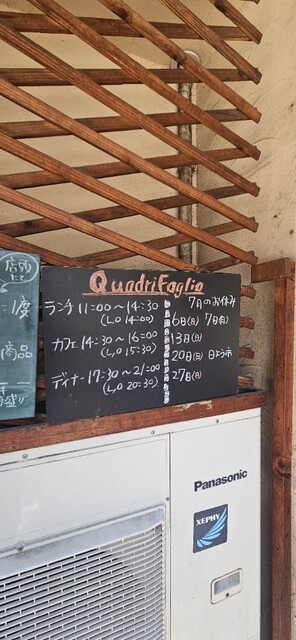 店頭
にて
1度
商品
盛り
QuadriFoglio
ランチ 11:00〜14:30
(L.O 14:00)
カフェ 14:30〜16:00
(L.O 15:30)
ディナー 17:30〜21:00
(L.O 20:30)
7月のお休み
6日(日) 7日(月)
13日(日)
20日(日) 日よう市
27日(日)
Panasonic
XEPHY